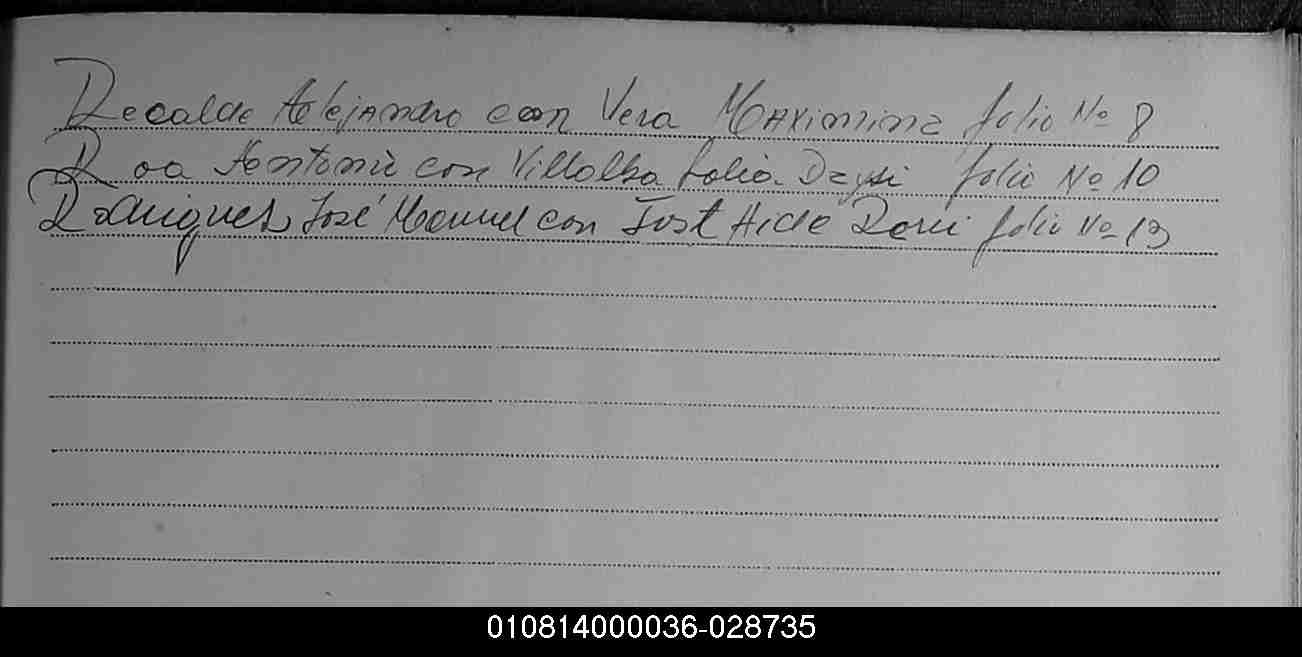 Recalde Alejandro con Vera Maximina folio Nº 8
Roa Antonio con Villalba Daysi folio Nº 10
Rodriguez José Manuel con Fost folio Nº 13
010814000036-028735